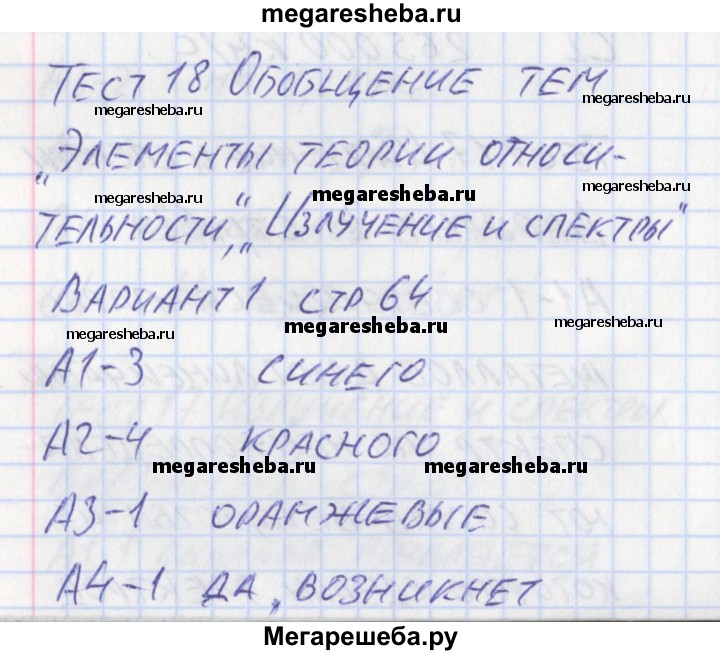 megaresheba.ru
Тест 18 Обобщение тем
megaresheba.ru megaresheba.ru
„Элементы теории относи-
megaresheba.ru megaresheba.ru
тельности", „Излучение и спектры"
Вариант 1 стр 64
megaresheba.ru megaresheba.ru megaresheba.ru
А1-3 синего
А2-4 красного
megaresheba.ru megaresheba.ru
А3-1 оранжевые
А4-1 да, возникнет
Мегарешеба.ру